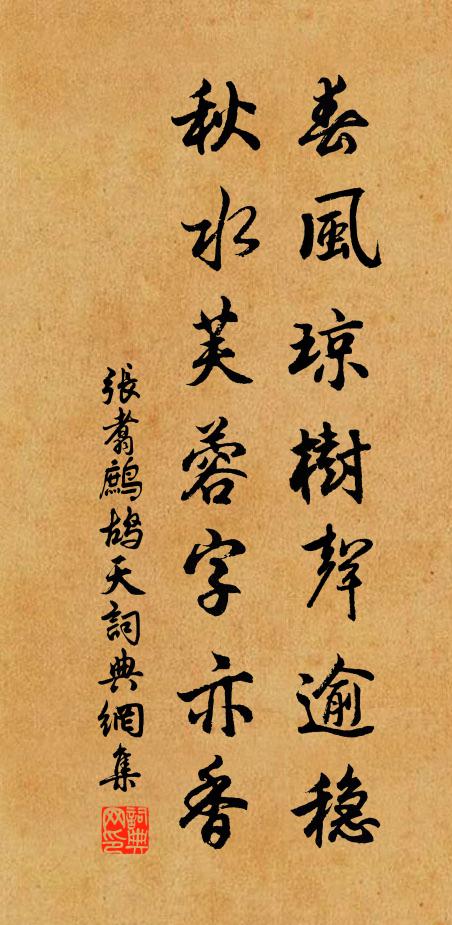 春風瓊樹聲逾穩
秋水芙蓉字亦香
張翥鷓鴣天詞典網集
詞典网印